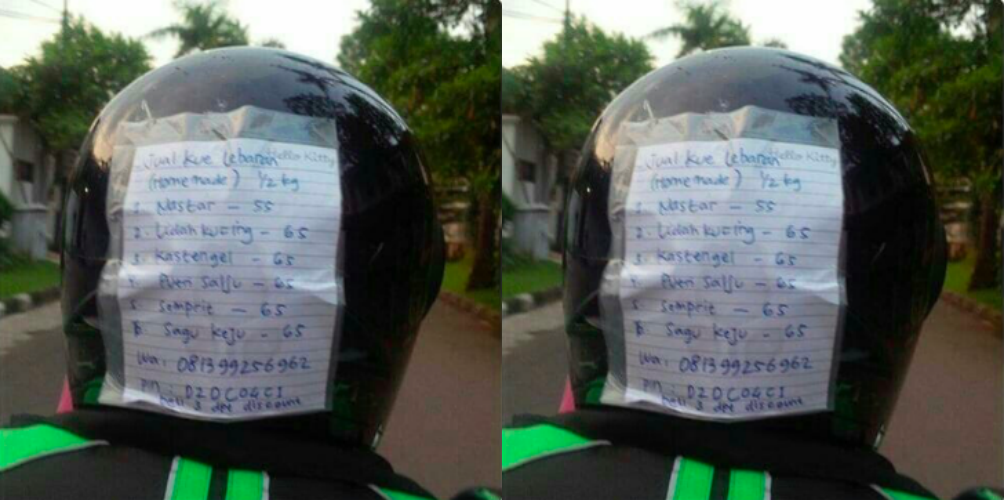 Jual Kue Lebaran
Hello Kitty
(Home made) 1/2 kg
1. Nastar - 55
2. Lidah kucing - 65
3. Kastengel - 65
4. Puteri Salju - 65
5. Semprit - 65
6. Sagu keju - 65
Wa: 081399256962
PIN: D2DC0GC1
beli 3 dpt discount
Jual Kue Lebaran
Hello Kitty
(Home made) 1/2 kg
1. Nastar - 55
2. Lidah kucing - 65
3. Kastengel - 65
4. Puteri Salju - 65
5. Semprit - 65
6. Sagu keju - 65
Wa: 081399256962
PIN: D2DC0GC1
beli 3 dpt discount